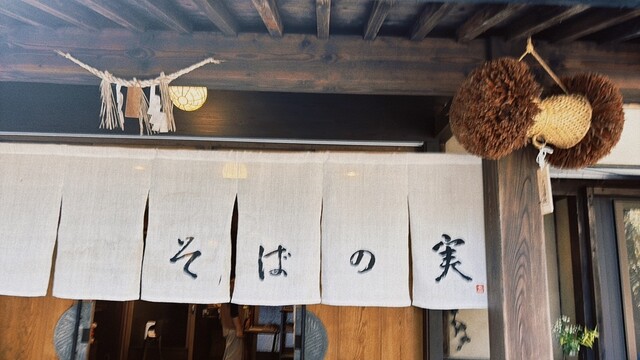 そばの実